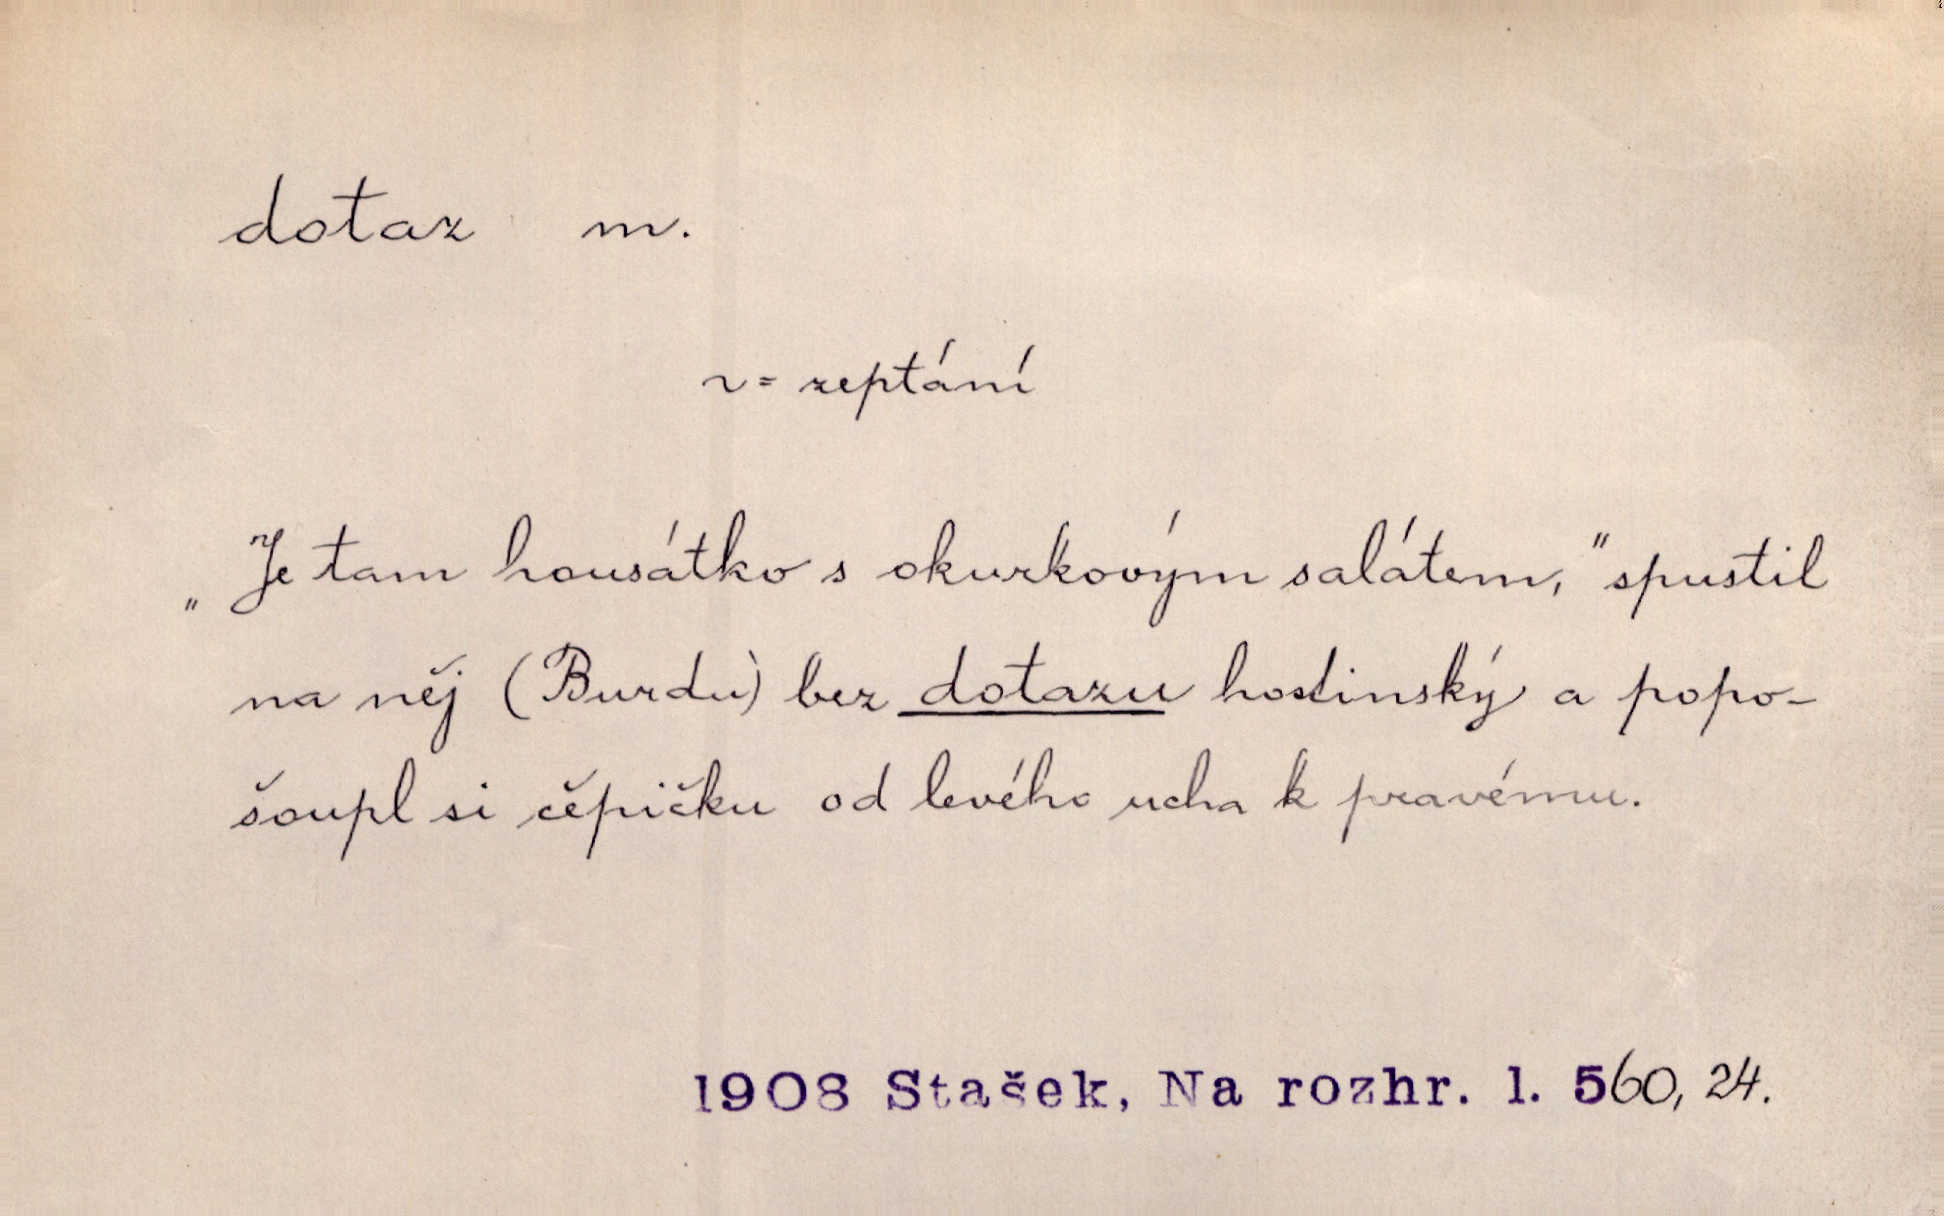 dotaz m.
v = zeptání
„Je tam housátko s okurkovým salátem,“ spustil
na něj (Burdu) bez dotazu hostinský a popo-
šoupl si čěpičku od levého ucha k pravému.
1908 Stašek, Na rozhr. l. 560, 24.